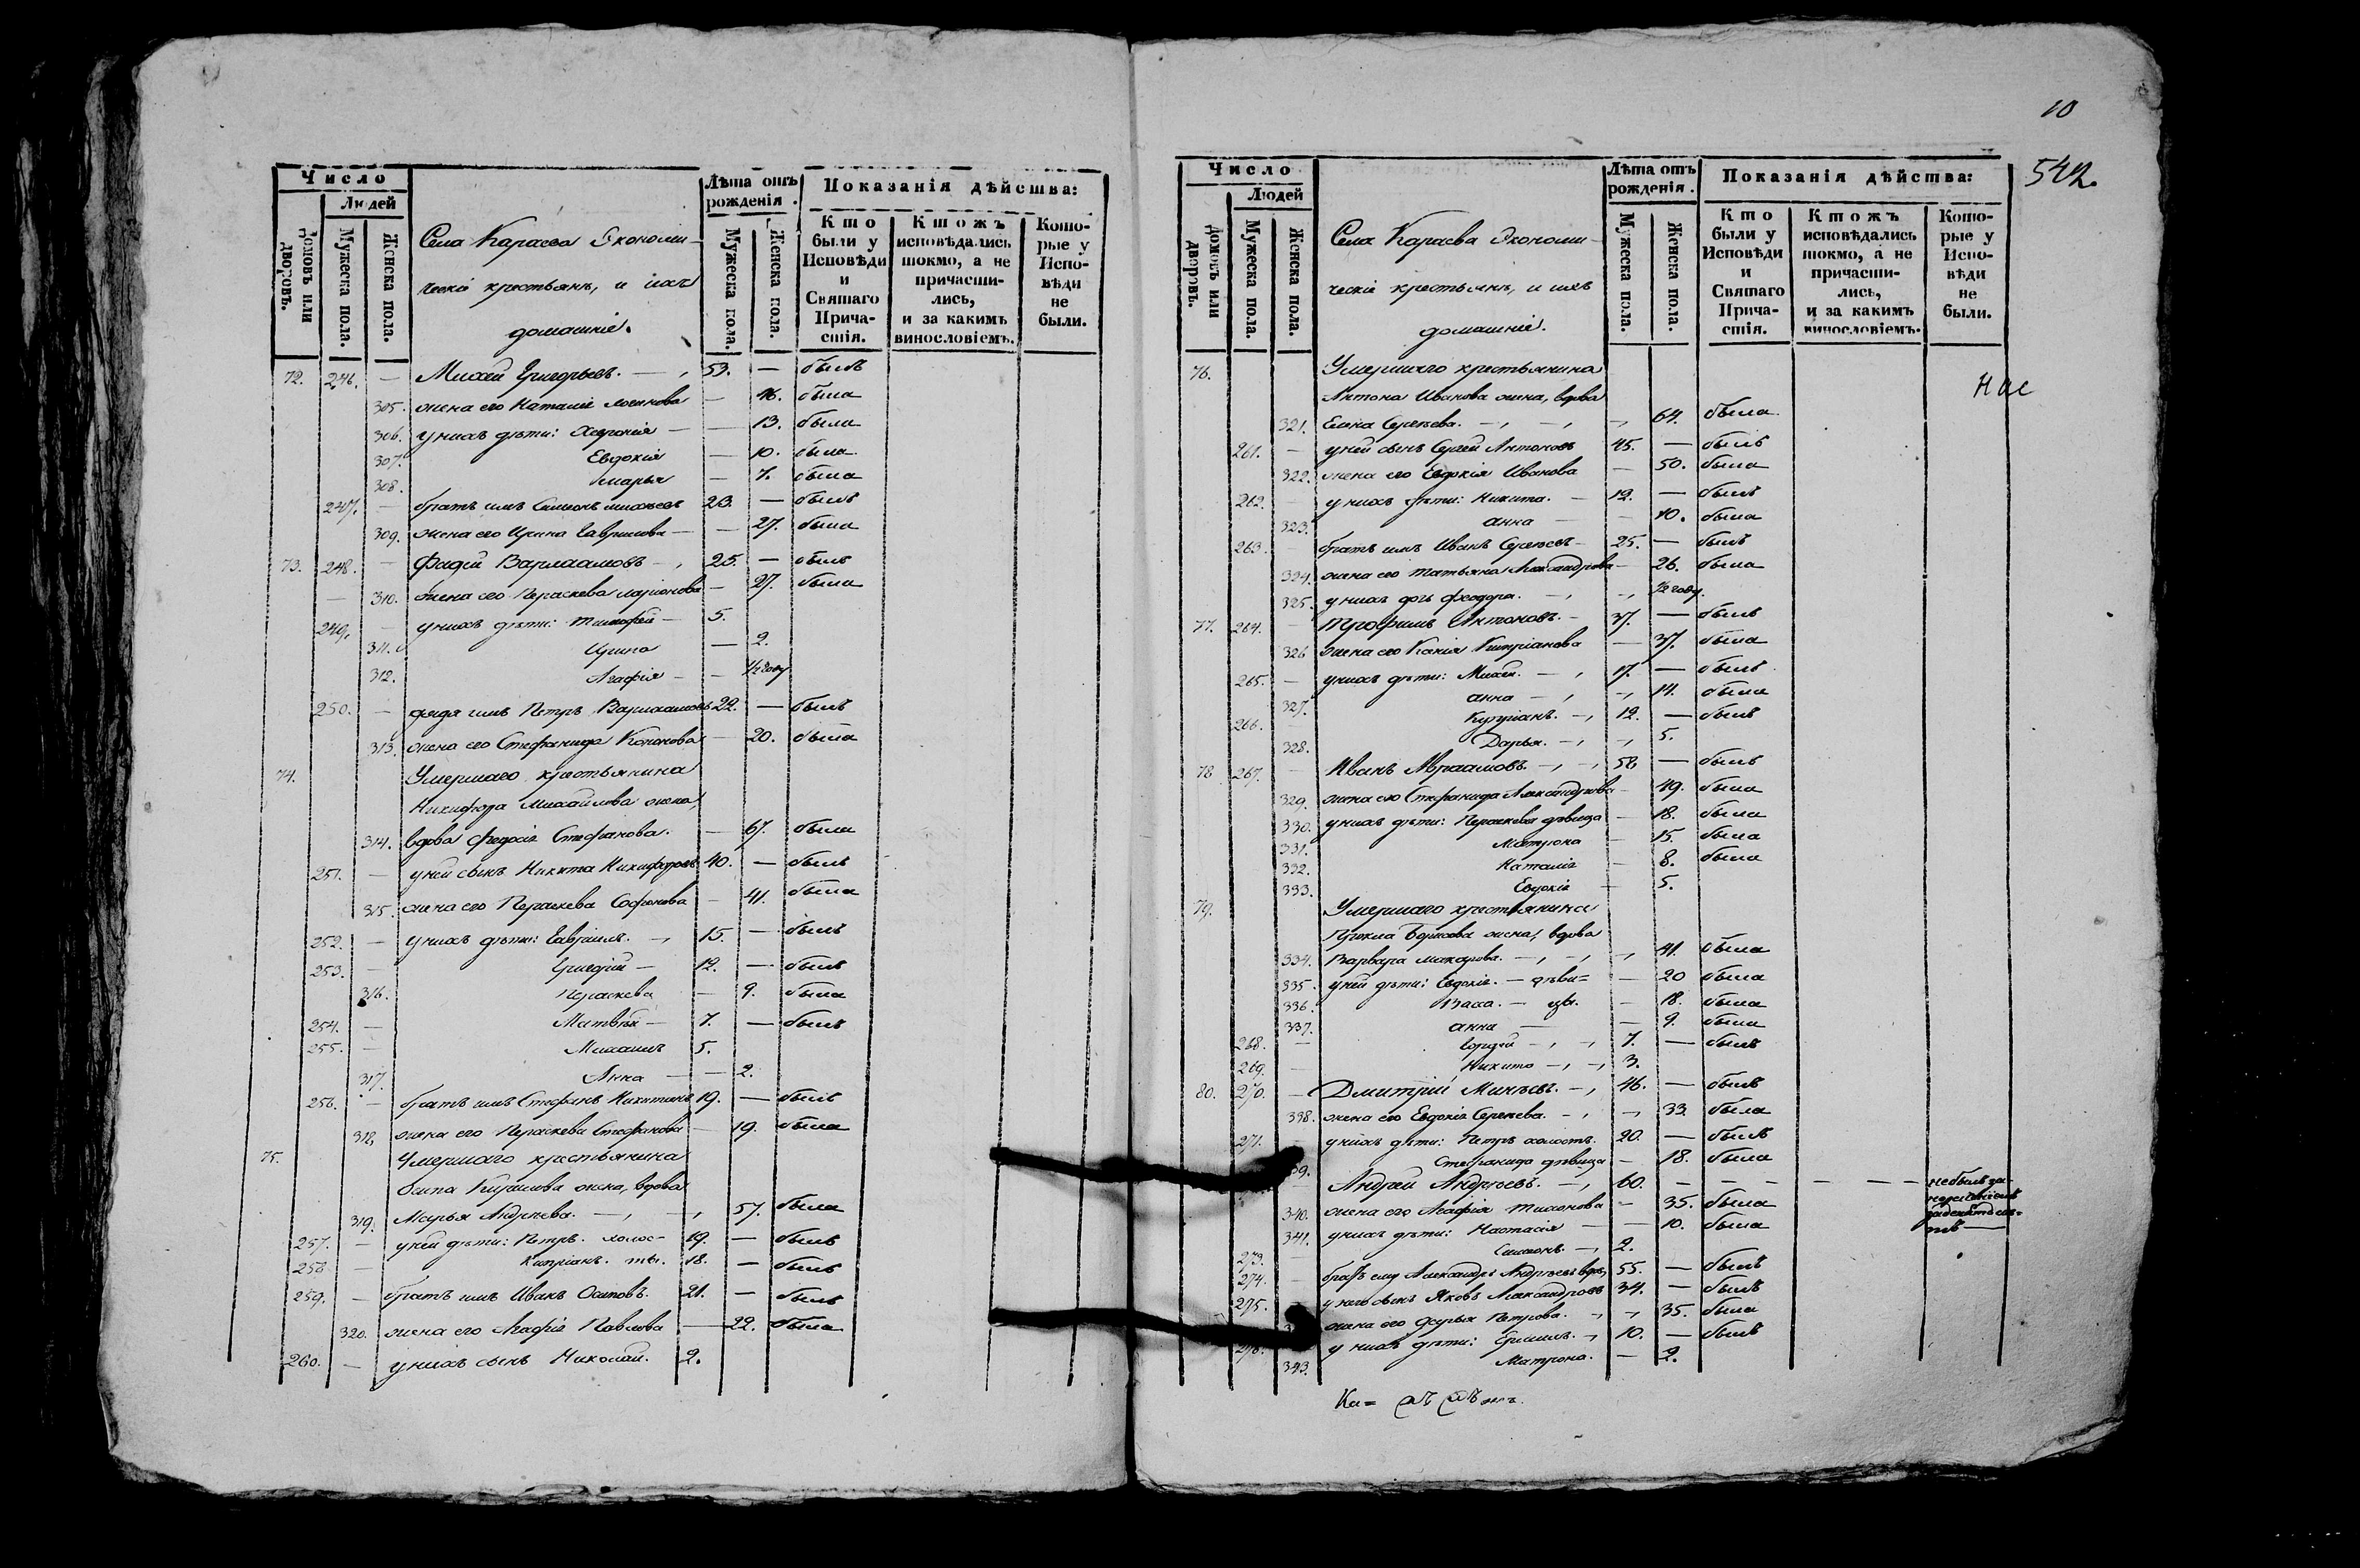 Число
Людей
Домовъ или дворовъ.
Мужеска пола.
Женска пола.
Села Караева Экономи-
ческiе крестьянъ, и ихъ
домашнiе.
Лѣта отъ рожденiя.
Мужеска пола.
Женска пола.
Показанiя дѣйства:
Кто были у Исповѣди и Святаго Причастiя.
Ктожъ исповѣдались токмо, а не причастились, и за какимъ винословiемъ.
Которые у Исповѣди не были.
72. 246. — Михей Григорьевъ. — 53. — былъ
305. жена его Наталiе — 46. была
306. у нихъ дѣти: — — 13. была
307. Евдокiя — 10. была
308. Марья — 7. была
247. — братъ имъ Симеонъ 23. — былъ
309. жена его Ирина Гаврилова — — 27. была
73. 248. — Фадей Варлаамовъ — 25. — былъ
— 310. жена его Параскева Ларiонова — 27. была
249. — у нихъ дѣти: Тимофей — 5.
311. Ирина — 2.
312. Агафiя — — 1/2 году
250. — дядя имъ Петръ Варлаамовъ 22. — былъ
313. жена его Стефанида Кононова — 20. была
74. Умершаго крестьянина
Никифора Михайлова жена,
314. вдова Федосiя Стефанова. — 67. была
251. — у ней сынъ Никита Никифоровъ 40. — былъ
315. жена его Параскева Софонова — 41. была
252. — у нихъ дѣти: Гаврiилъ. — 15. — былъ
253. — Григорiй — 12. — былъ
316. Параскева — 9. была
254. — Матвѣй — 7. — былъ
255. — Михаилъ 5.
317. Анна — — 2.
256. — братъ имъ Стефанъ Никитинъ 19. — былъ
318. жена его Параскева Стефанова — 19. была
75. Умершаго крестьянина
Осипа Кирилова жена, вдова
319. Марья Андреева. — 57. была
257. — у ней дѣти: Петръ. холос- 19. — былъ
258 — Кипрiанъ. ты. 18. — былъ
259. — братъ имъ Иванъ Осиповъ. 21. — былъ
320. жена его Агафiя Павлова — 22. была
260. — у нихъ сынъ Николай. 2.
10
542.
Число
Людей
Домовъ или дворовъ.
Мужеска пола.
Женска пола.
Села Караева Экономи-
ческiе крестьянъ, и ихъ
домашнiе.
Лѣта отъ рожденiя.
Мужеска пола.
Женска пола.
Показанiя дѣйства:
Кто были у Исповѣди и Святаго Причастiя.
Ктожъ исповѣдались токмо, а не причастились, и за какимъ винословiемъ.
Которые у Исповѣди не были.
76. Умершаго крестьянина
Антона Иванова жена, вдова
321. Елена Сергѣева. — 64. была
261. — у ней сынъ Сергей Антоновъ 45. — былъ
322. жена его Евдокiя Иванова — 50. была
262. — у нихъ дѣти: Никита. — 12. — былъ
323. Анна — — 10. была
263. — братъ имъ Иванъ Сергѣевъ — 25. — былъ
324. жена его Татьяна Александрова — 26. была
325. у нихъ дочь Феодора. — 1/2 году
77. 264. — Трофимъ Антоновъ. — 37. — былъ
326 жена его Ксенiя Кипрiанова — 37. была
265. — у нихъ дѣти: Михей. — 17. — былъ
327. Анна — 14. была
266. — Купрiанъ. — 12. — былъ
328. Дарья. — 5.
78 267. — Иванъ Авраамовъ. — 58 — былъ
329. жена его Стефанида Александрова — 49. была
330. у нихъ дѣти: Параскева дѣвица — 18. была
331. Матрона — 15. была
332. Наталiя — 8. была
333. Евдокiя — 5.
79. Умершаго крестьянина
Прокла Борисова жена, вдова
334. Варвара Макарова. — 41. была
335. у ней дѣти: Евдокiя. — дѣви= — 20 была
336. Васса. — цы. — 18. была
337. Анна — — 9. была
268. — 7. — былъ
269. — Никита — 3.
80. 270. — Дмитрiй Минѣевъ. — 46. — былъ
338. жена его Евдокiя Сергѣева. — 33 была
271. — у нихъ дѣти: Петръ холостъ. 20. — былъ
39. Стефанида дѣвица — 18. была
Андрей Андреевъ. — 60. — — — — — не былъ за
340. жена его Агафiя Тихонова — 35. была
341. у нихъ дѣти: Настасiя — — 10. была
273. — Симеонъ. — 2.
274. — братъ ему Александръ Андреевъ вдов. 55. — былъ
275. у него сынъ Яковъ Александровъ 34. — былъ
жена его Дарья Петрова. — 35. была
276. у нихъ дѣти: 10. — былъ
343. Матрона. — 2.